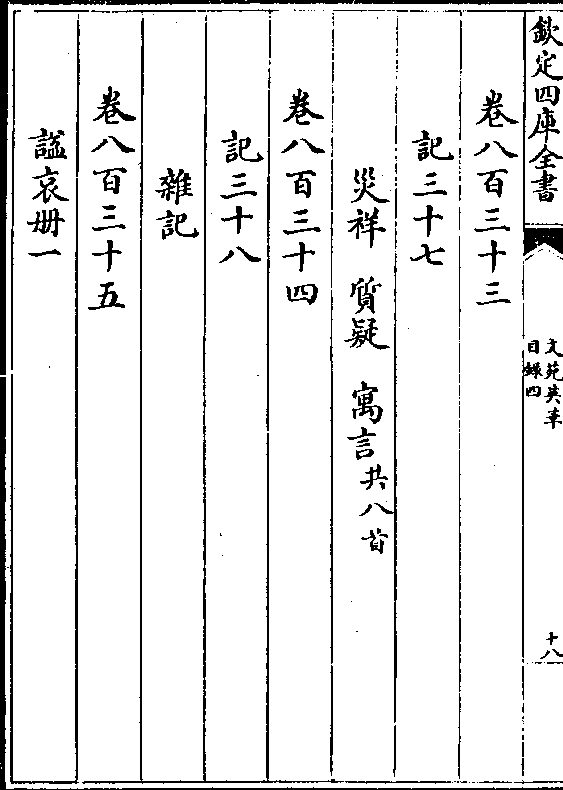 欽定四庫全書
文苑英華
目録四
十八
卷八百三十三
記三十七
災祥 質疑 寓言共八首
卷八百三十四
記三十八
雜記
卷八百三十五
謚哀册一